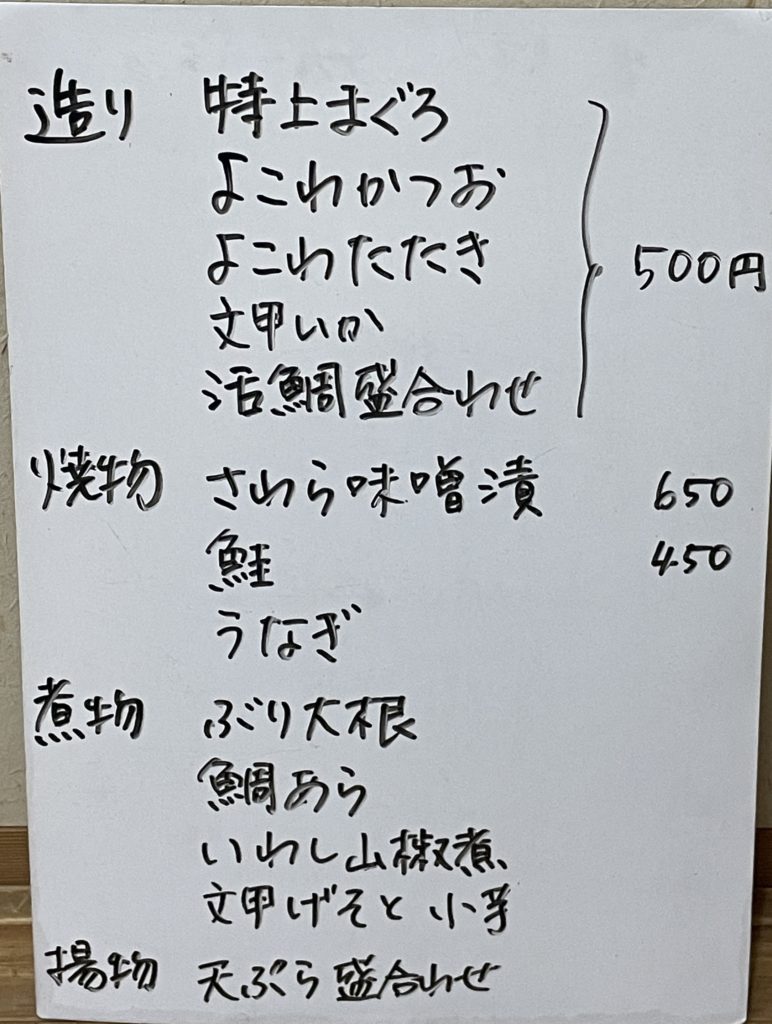 造り 特上まぐろ
よこわかつお
よこわたたき 500円
文甲いか
活鯛盛合わせ
焼物 さわら味噌漬 650
鮭 450
うなぎ
煮物 ぶり大根
鯛あら
いわし山椒煮
文甲げそと小芋
揚物 天ぷら盛合わせ